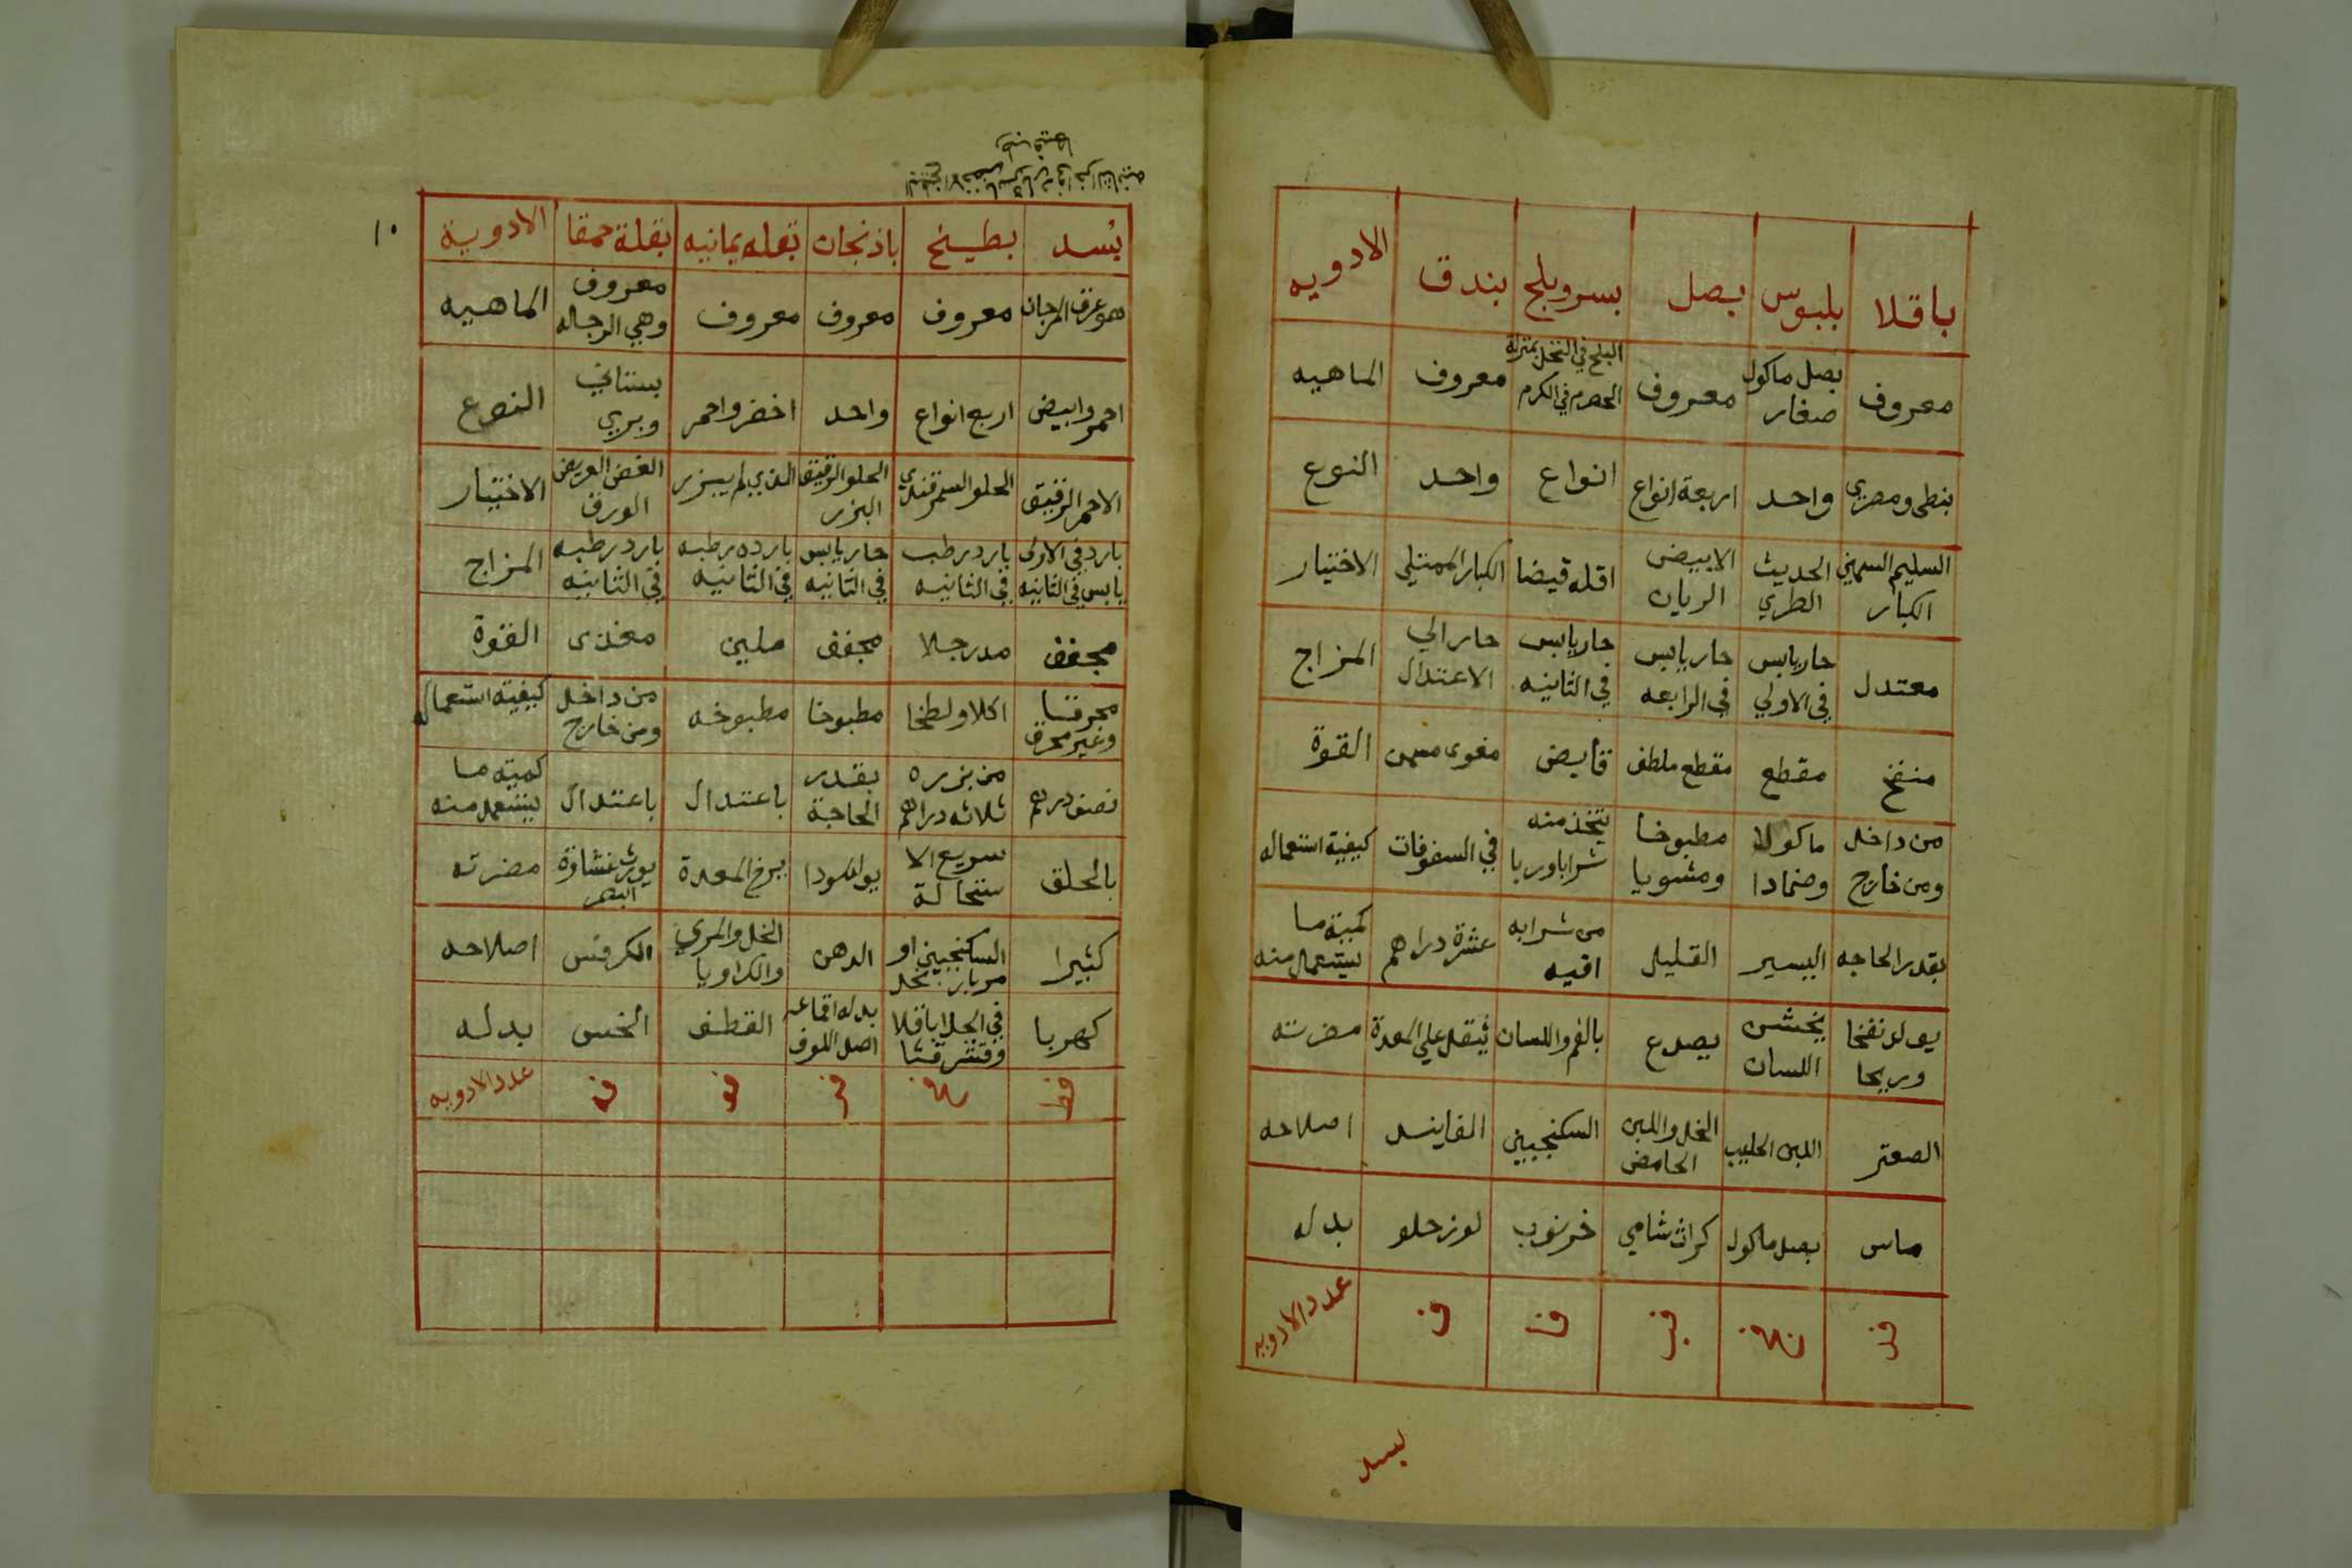 باقلا بلبوس بصل بسر وبلح بندق الادويه
معروف بصل ماكول صغار معروف البلح في النخل بمنزلة الحصرم في الكرم معروف الماهيه
بنطى ومصري واحد اربعة انواع انواع واحد النوع
السليم السمين الكبار الحديث الطري الابيض الريان اقله قبضا الكبار الممتلى الاختيار
معتدل حار يابس في الاولي حار يابس في الرابعه حار يابس في الثانيه حار الي الاعتدال المزاج
منفخ مقطع مقطع ملطف قابض مغوى مسمن القوة
من داخل ومن خارج ماكولا وضمادا مطبوخا ومشويا يتخذ منه شرابا وربا في السفوفات كيفية استعماله
بقدر الحاجه اليسير القليل من شرابه اقيه عشرة دراهم كمية ما يستعمل منه
يولد نفخا وريحا يخشن اللسان يصدع بالفم واللسان يثقل علي المعدة مضرته
الصعتر اللبن الحليب الخل واللبن الحامض السكنجبين الفانيد اصلاحه
ماس بصل ماكول كراث شامي خرنوب لوز حلو بدله
عدد الادويه
بسد
١٠
بسد بطيخ باذنجان بقله يمانيه بقلة حمقا الادوية
هو عرق المرجان معروف معروف معروف معروف وهي الرجله الماهيه
احمر وابيض اربع انواع واحد اخضر واحمر بستاني وبري النوع
الاحمر الرقيق الحلو السمرقندي الحلو الرقيق البزر الذي لم يبزر الغض العريض الورق الاختيار
بارد في الاولى يابس في الثانيه بارد رطب في الثانيه حار يابس في الثانيه بارده رطبه في الثانيه بارد رطبه في الثانيه المزاج
مجفف مدر جلا مجفف ملين مغذى القوة
محرقا وغير محرق اكلا ولطخا مطبوخا مطبوخه من داخل ومن خارج كيفية استعماله
نصف درهم من بزره ثلاثه دراهم بقدر الحاجة باعتدال باعتدال كمية ما يستعمل منه
بالحلق سريع الاستحالة يولد سودا يرخ المعدة يورث غشاوة البصر مضرته
كثيرا السكنجبين او الدهن الخل والمري والكراويا الكرفس اصلاحه
كهربا في الجلا باقلا وقشر قثا بدله اقماعه اصل اللوف القطف الخس بدله
عدد الادويه